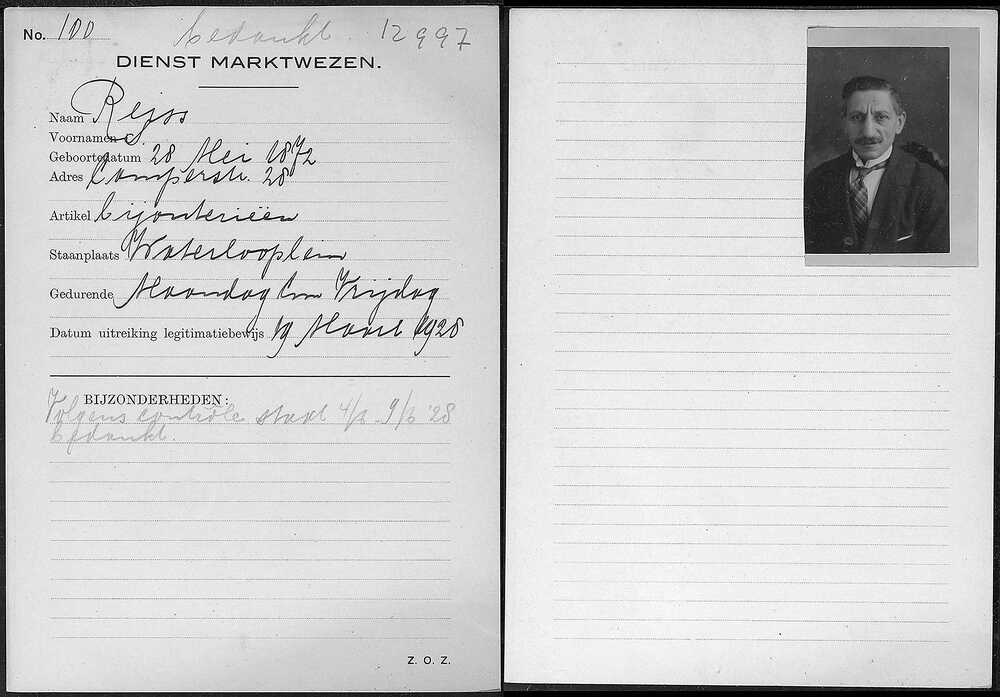 No. 100 bedankt. 12997
DIENST MARKTWEZEN.
Naam Rejss
Voornamen S.
Geboortedatum 28 Mei 1872
Adres Camperstr. 28
Artikel bijouterieën
Staanplaats Waterlooplein
Gedurende Maandag t/m Vrijdag
Datum uitreiking legitimatiebewijs 19 Maart 1928
BIJZONDERHEDEN:
Volgens contrôle staat 4/6 - 9/6 '28
bedankt.
Z. O. Z.